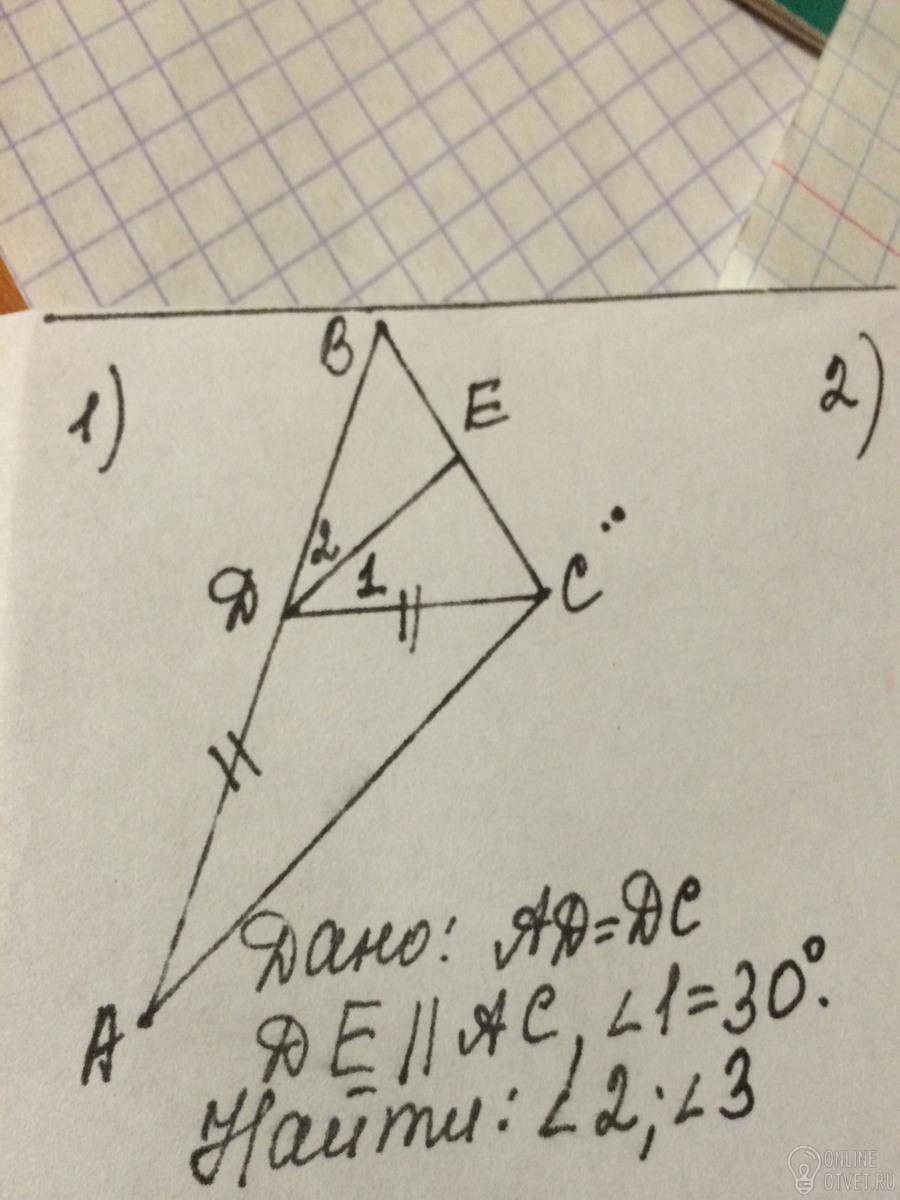 1)
2)
B
E
2
1
D
C
A
Дано: AD=DC
DE || AC, ∠1=30°.
Найти: ∠2; ∠3
ONLINE
OTVET.RU